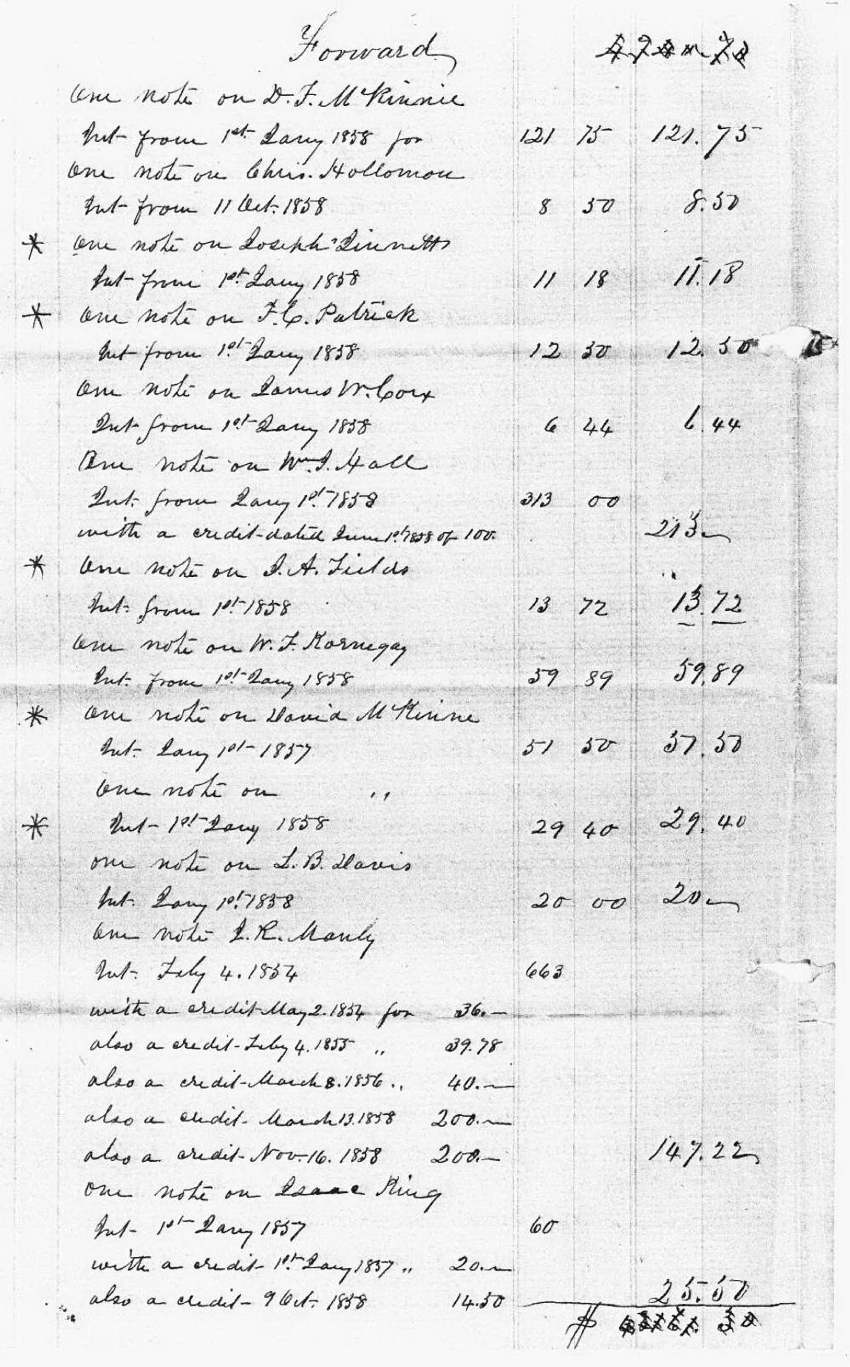 Forward
One note on D. F. McKinnie
Int from 1st Jany 1858 for 121 75 121.75
One note on Chris. Hollomon
Int from 11 Oct. 1858 8 50 8.50
* One note on Joseph Jinnetts
Int from 1st Jany 1858 11 18 11.18
* One note on F. C. Patrick
Int from 1st Jany 1858 12 50 12.50
One note on James W. Cox
Int from 1st Jany 1858 6 44 6.44
One note on Wm. J. Hall
Int. from Jany 1st. 1858 313 00
with a credit dated June 1st. 1858 of 100. 213
* One note on J. A. Fields
Int. from 1st 1858 13 72 13.72
One note on W. F. Kornegay
Int. from 1st Jany 1858 59 89 59.89
* One note on David McKinne
Int. Jany 1st 1857 51 50 51.50
One note on ,,
* Int 1st Jany 1858 29 40 29.40
one note on L. B. Davis
Int. Jany 1st. 1858 20 00 20
One note J. R. Manly
Int. Feby 4. 1854 663
with a credit May 2. 1854 for 36.
also a credit Feby 4. 1855 ,, 39.78
also a credit March 8. 1856 ,, 40.
also a credit March 13. 1858 200.
also a credit Nov. 16. 1858 200. 147.22
One note on Isaac King
Int 1st Jany 1857 60
with a credit 1st. Jany 1857 ,, 20.
also a credit 9 Oct. 1858 14.50 25.50
$